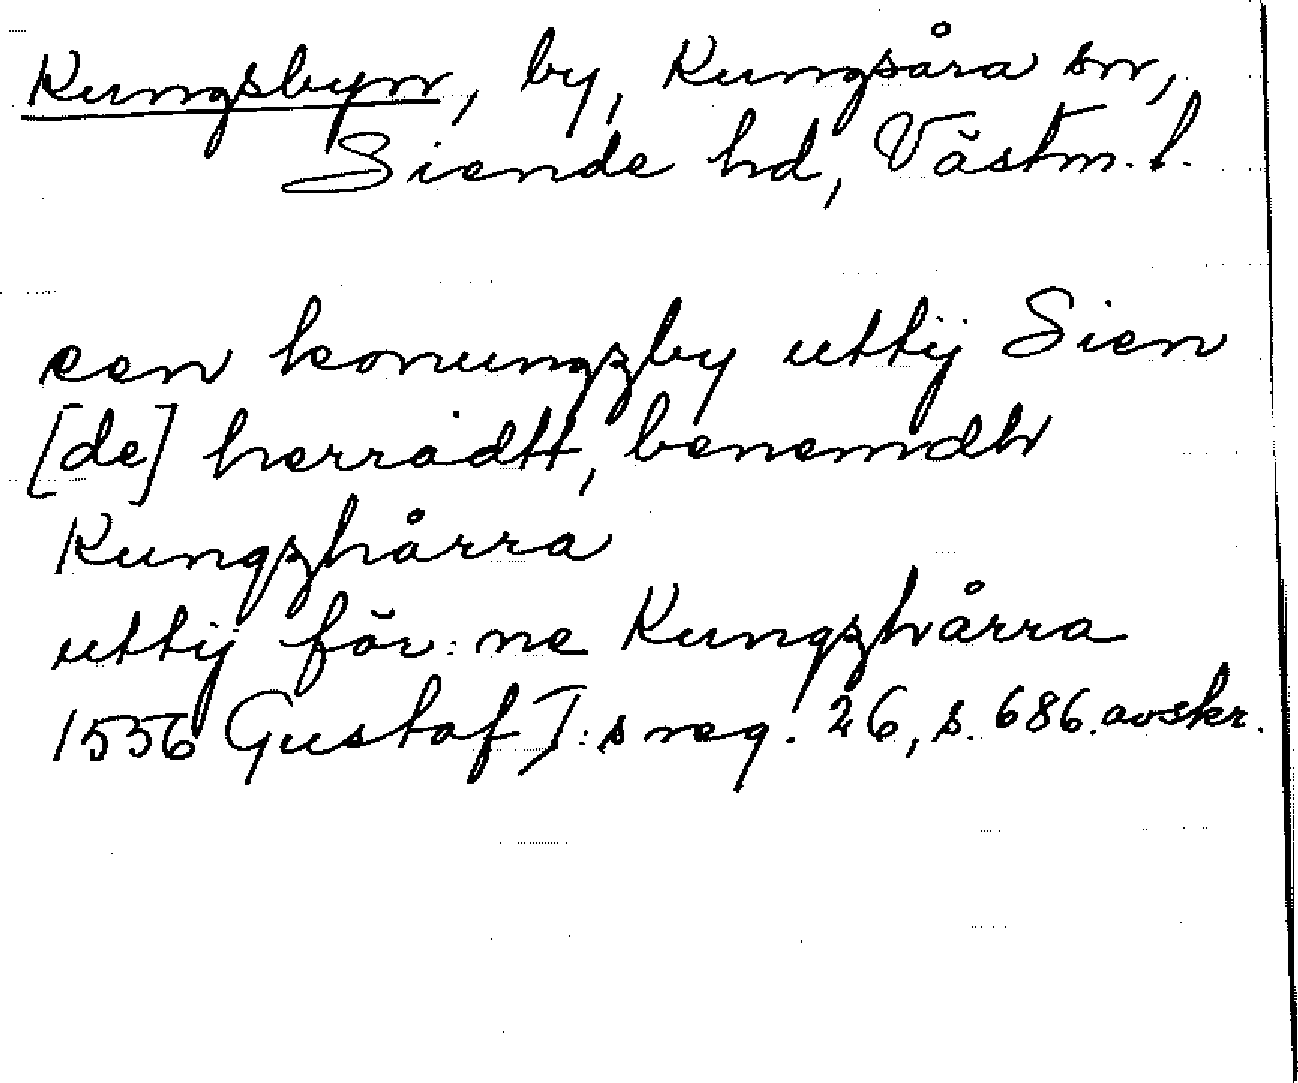 Kungsbyn, by, Kungsåra sn,
Siende hd, Västm. l.
een konungzby uttij Sien
[de] herradtt, benemdh
Kungzhårra
uttij för: ne Kungzhårra
1556 Gustaf I:s reg. 26, s. 686. avskr.